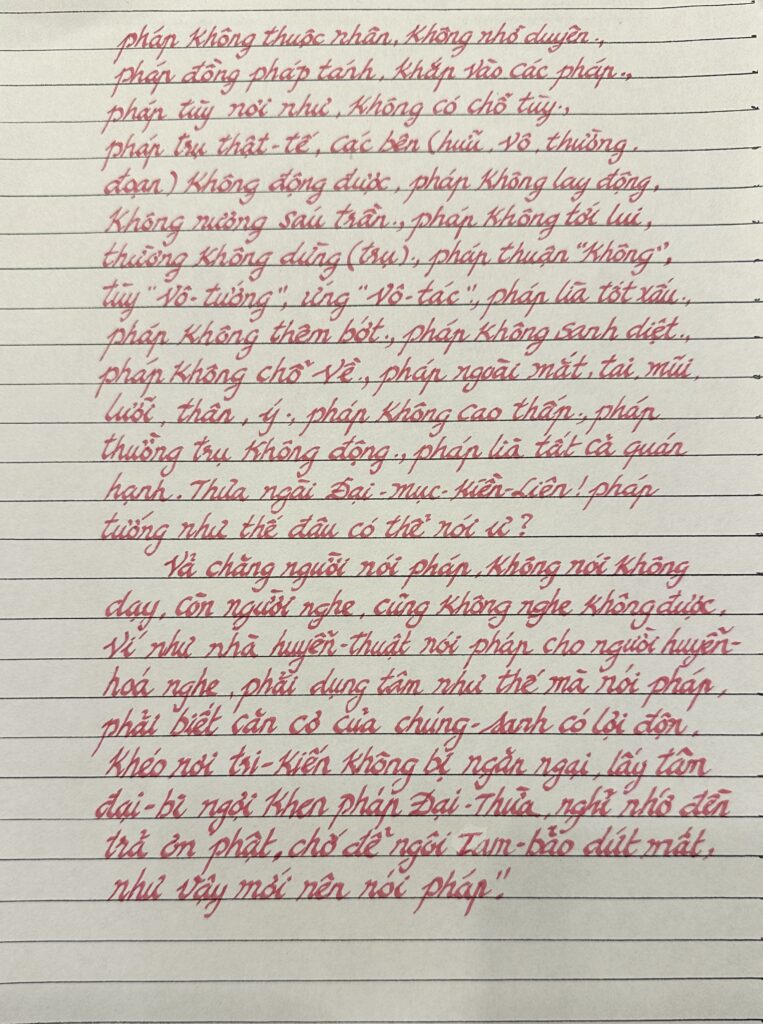 pháp không thuộc nhân, không nhờ duyên.,
pháp đồng pháp tánh, khắp vào các pháp.,
pháp tùy nơi như, không có chỗ tùy.,
pháp trụ thật-tế, các bên (hữu, vô, thường,
đoạn) không động được, pháp không lay động,
không nương sáu trần., pháp không tới lui,
thường không dừng (trụ)., pháp thuận "không",
tùy "vô-tướng", ứng "vô-tác"., pháp lìa tốt xấu.,
pháp không thêm bớt., pháp không sanh diệt.,
pháp không chỗ về., pháp ngoài mắt, tai, mũi,
lưỡi, thân, ý., pháp không cao thấp., pháp
thường trụ không động., pháp lìa tất cả quán
hạnh. Thưa ngài Đại-Mục-Kiền-Liên! pháp
tướng như thế đâu có thể nói ư?
Vả chăng người nói pháp, không nói không
dạy, còn người nghe, cũng không nghe không được,
ví như nhà huyễn-thuật nói pháp cho người huyễn-
hoá nghe, phải dụng tâm như thế mà nói pháp,
phải biết căn cơ của chúng-sanh có lợi độn,
khéo nơi tri-kiến không bị ngăn ngại, lấy tâm
đại-bi ngợi khen pháp Đại-Thừa, nghĩ nhớ đền
trả ơn phật, chớ để ngôi Tam-bảo dứt mất,
như vậy mới nên nói pháp".